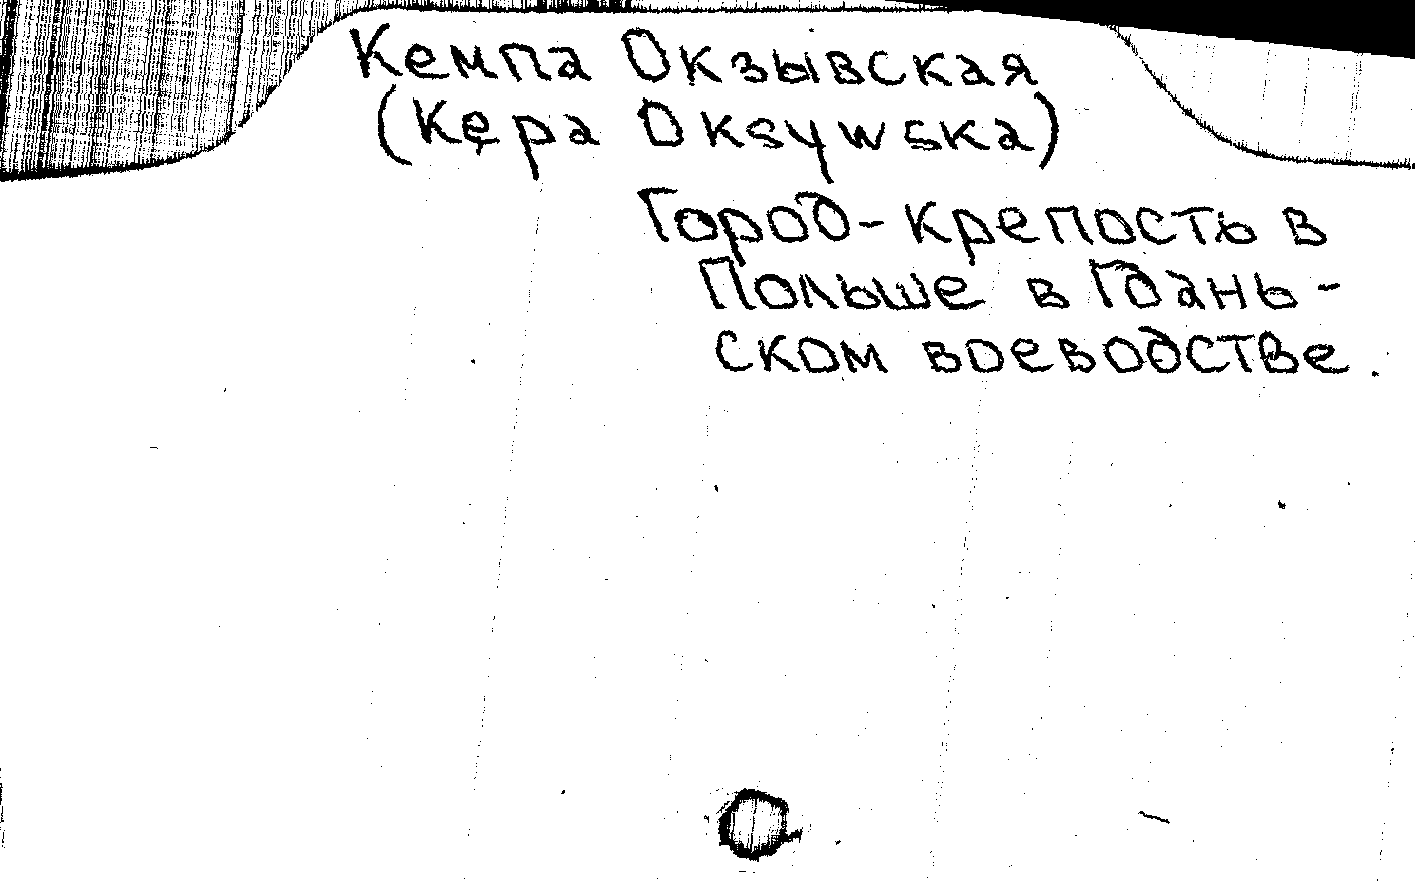 Кемпа Окзывская
(Kępa Oksywska)
Город-крепость в
Польше в Гдань-
ском воеводстве.